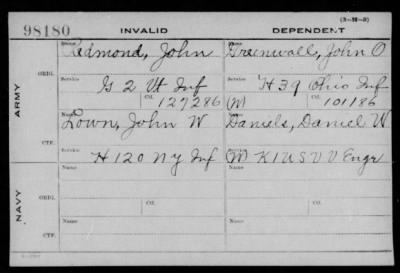 (3-38-3)
98180 INVALID DEPENDENT
Name Name
Redmond, John Greenwall, John O
ORDI.
Service Service
G 2 Vt Inf H 39 Ohio Inf
Ctf. Ctf.
127286 (M) 101186
ARMY
Name Name
Lown, John W Daniels, Daniel W
CTF.
Service Service
H 120 NY Inf (M) K 1 U S V V Engr
Name Name
ORDI.
Service Service
Ctf. Ctf.
NAVY
Name Name
CTF.
Service Service